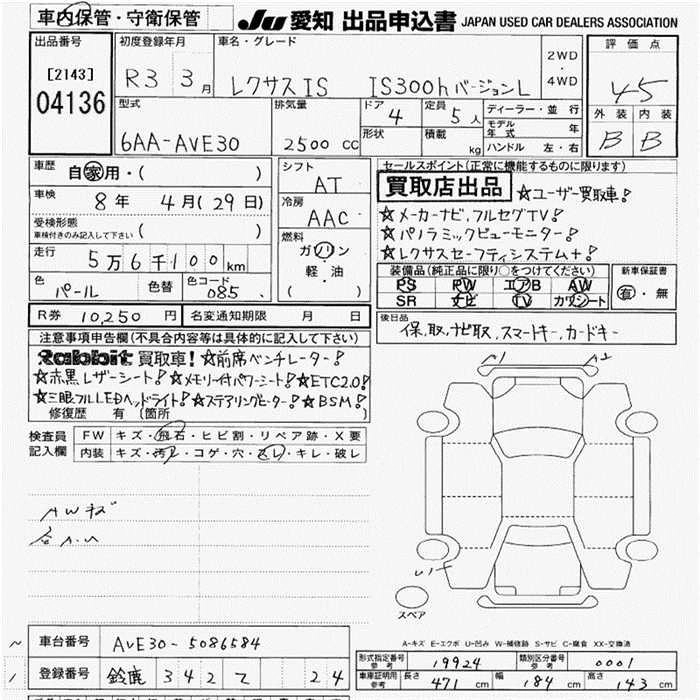 車内保管・守衛保管
JU 愛知 出品申込書 JAPAN USED CAR DEALERS ASSOCIATION
出品番号
[2143]
04136
初度登録年月
R3 3月
車名・グレード
レクサスIS IS300hバージョンL
2WD
・
4WD
評価点
4.5
外装 内装
B B
型式
6AA-AVE30
排気量
2500 CC
ドア
4
形状
定員
5人
積載
kg
ディーラー・並行
モデル年式 年
ハンドル 左・右
車歴
自家用・( )
車検
8年 4月(29日)
受検形態
車検付きのみ記入して下さい ( )
走行
5万6千100km
色
パール
色替
色コード
085
シフト
AT
冷房
AAC
燃料
ガソリン
軽・油
( )
セールスポイント(正常に機能するものに限ります)
買取店出品 ☆ユーザー買取車!
☆メーカーナビ,フルセグTV!
☆パノラミックビューモニター!
☆レクサスセーフティシステム+!
装備品(純正品に限り○をつけてください)
PS PW エアB AW
SR ナビ TV カワシート
新車保証書
有・無
R券 10,250円 名変通知期限 月 日
後日品
保,取,ナビ取,スマートキー,カードキー
注意事項申告欄(不具合内容等は具体的に記入して下さい)
Rabbit 買取車! ☆前席ベンチレーター!
☆赤黒レザーシート! ☆メモリー付パワーシート! ☆ETC2.0!
☆三眼フルLEDヘッドライト! ☆ステアリングヒーター! ☆BSM!
修復歴 有 (箇所 )
検査員
記入欄
FW キズ・飛石・ヒビ割・リペア跡・X要
内装 キズ・汚レ・コゲ・穴・スレ・キレ・破レ
AWキズ
A1 A2
スペア
A-キズ E-エクボ U-凹み W-補修跡 S-サビ C-腐食 XX-交換済
車台番号 AVE30-5086584
登録番号 鈴鹿 342 て 24
形式指定番号
参考
19924
類別区分番号
参考
0001
車庫証明用
参考
長さ 471 cm 幅 184 cm 高さ 143 cm